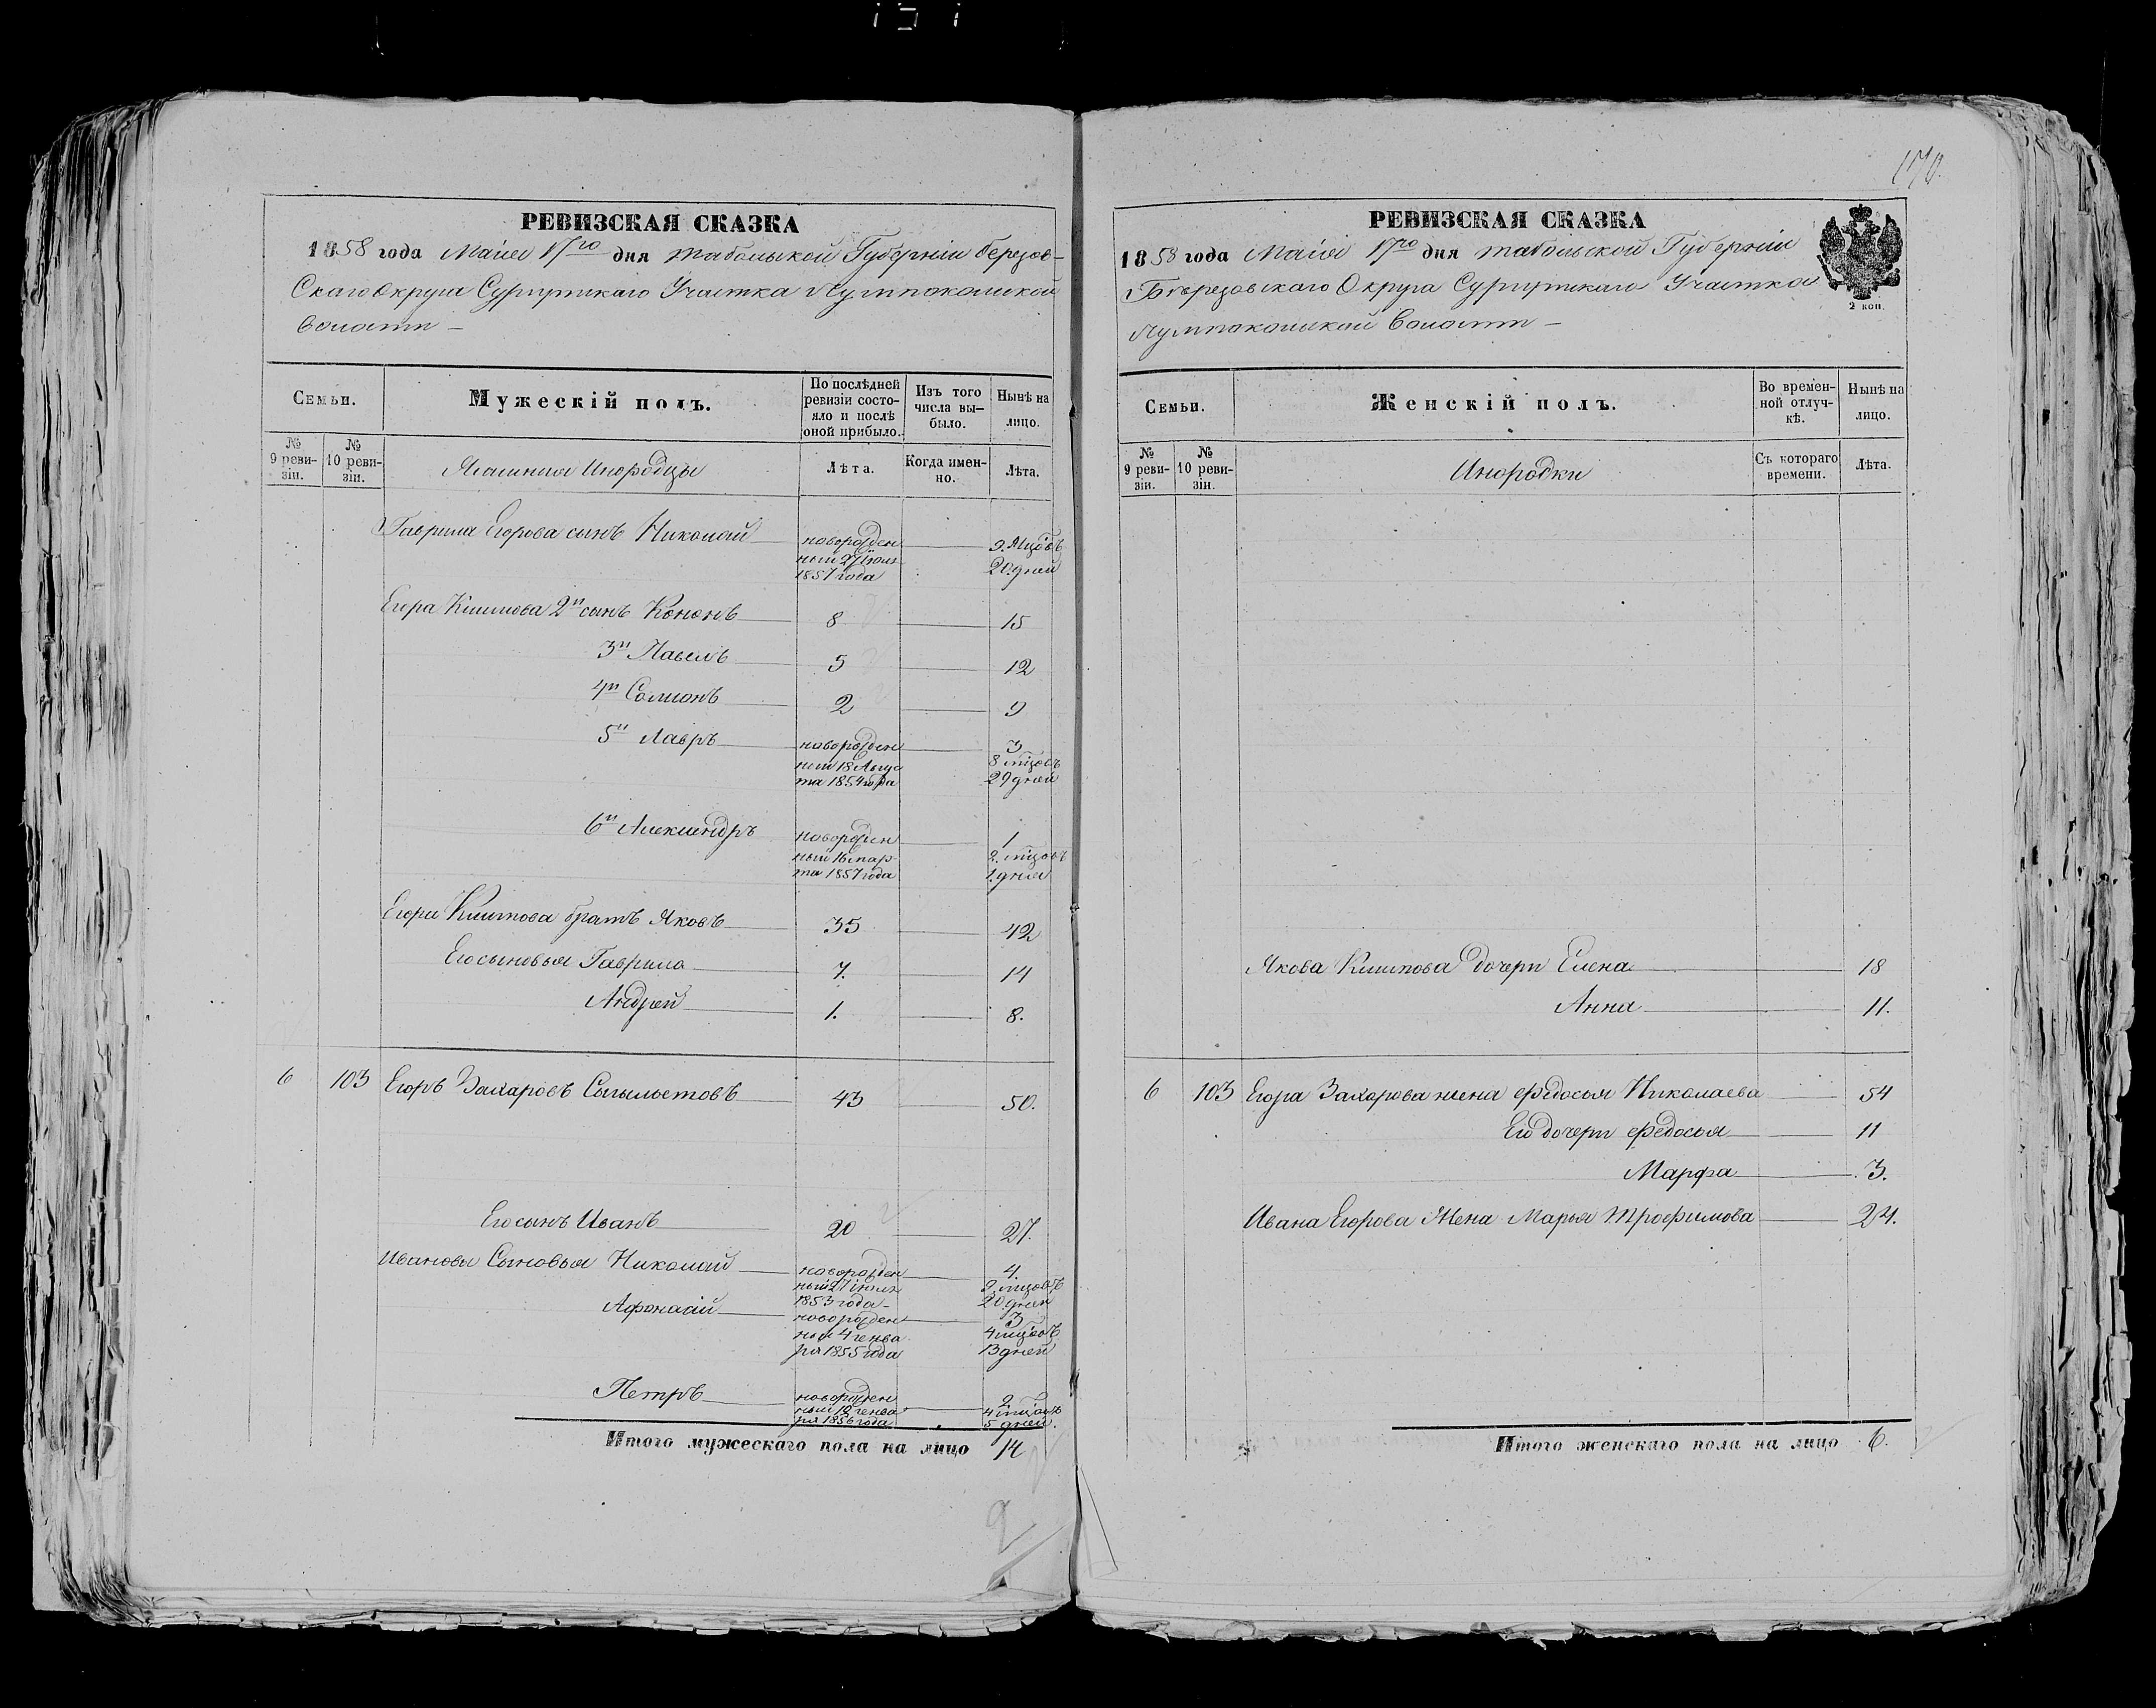 170.
РЕВИЗСКАЯ СКАЗКА
1858 года Маія 17го дня Табольской Губерніи Березов-
скаго Округа Сургутскаго Участка Лумпокольской
волости —
Семьи.
Мужескій полъ.
По послѣдней ревизіи состо-
яло и послѣ
оной прибыло.
Изъ того
числа вы-
было.
Нынѣ на
лицо.
№
9 реви-
зіи.
№
10 реви-
зіи.
Инородцы
Лѣта.
Когда имен-
но.
Лѣта.
Гаврила Егорова сынъ Николай
новорожден
ный 27 іюля
1857 года
9. мцовъ
20 дней
Егора Климова 2й сынъ Кононъ 8 15
3й Павелъ 5 12
4й Соломонъ 2 9
5й Лавръ
новорожден
ный 18 Авгус
та 1854 года
3
8 мцовъ
29 дней
6й Александръ
новорожден
ный 16 мар
та 1857 года
1
2. мцовъ
1. дня
Егора Климова братъ Яковъ 35 42
Его сыновья Гаврила 7. 14
Андрей 1. 8.
6 103 Егоръ Захаровъ 43 50.
Его сынъ Иванъ 20 27.
Ивановы Сыновья Николай
новорожден
ный 27 іюля
1853 года
4.
9 мцовъ
20 дней
Афонасій
новорожден
ный 4 генва
ря 1855 года
3
4 мцовъ
13 дней
Петръ
новорожден
ный 12 генва
ря 1856 года
2
4 мцовъ
5 дней.
Итого мужескаго пола на лицо 14
РЕВИЗСКАЯ СКАЗКА
1858 года Маія 17го дня Табольской Губерніи
Березовскаго Округа Сургутскаго Участка
Лумпокольской Волости —
2 коп.
Семьи.
Женскій полъ.
Во времен-
ной отлуч-
кѣ.
Нынѣ на
лицо.
№
9 реви-
зіи.
№
10 реви-
зіи.
Инородки
Съ котораго
времени.
Лѣта.
Якова Климова дочери Елена 18
Анна 11.
6 103 Егора Захарова жена Федосья Николаева 54
Его дочери Федосья 11
Марфа 3.
Ивана Егорова Жена Марья Трофимова 24.
Итого женскаго пола на лицо 6.